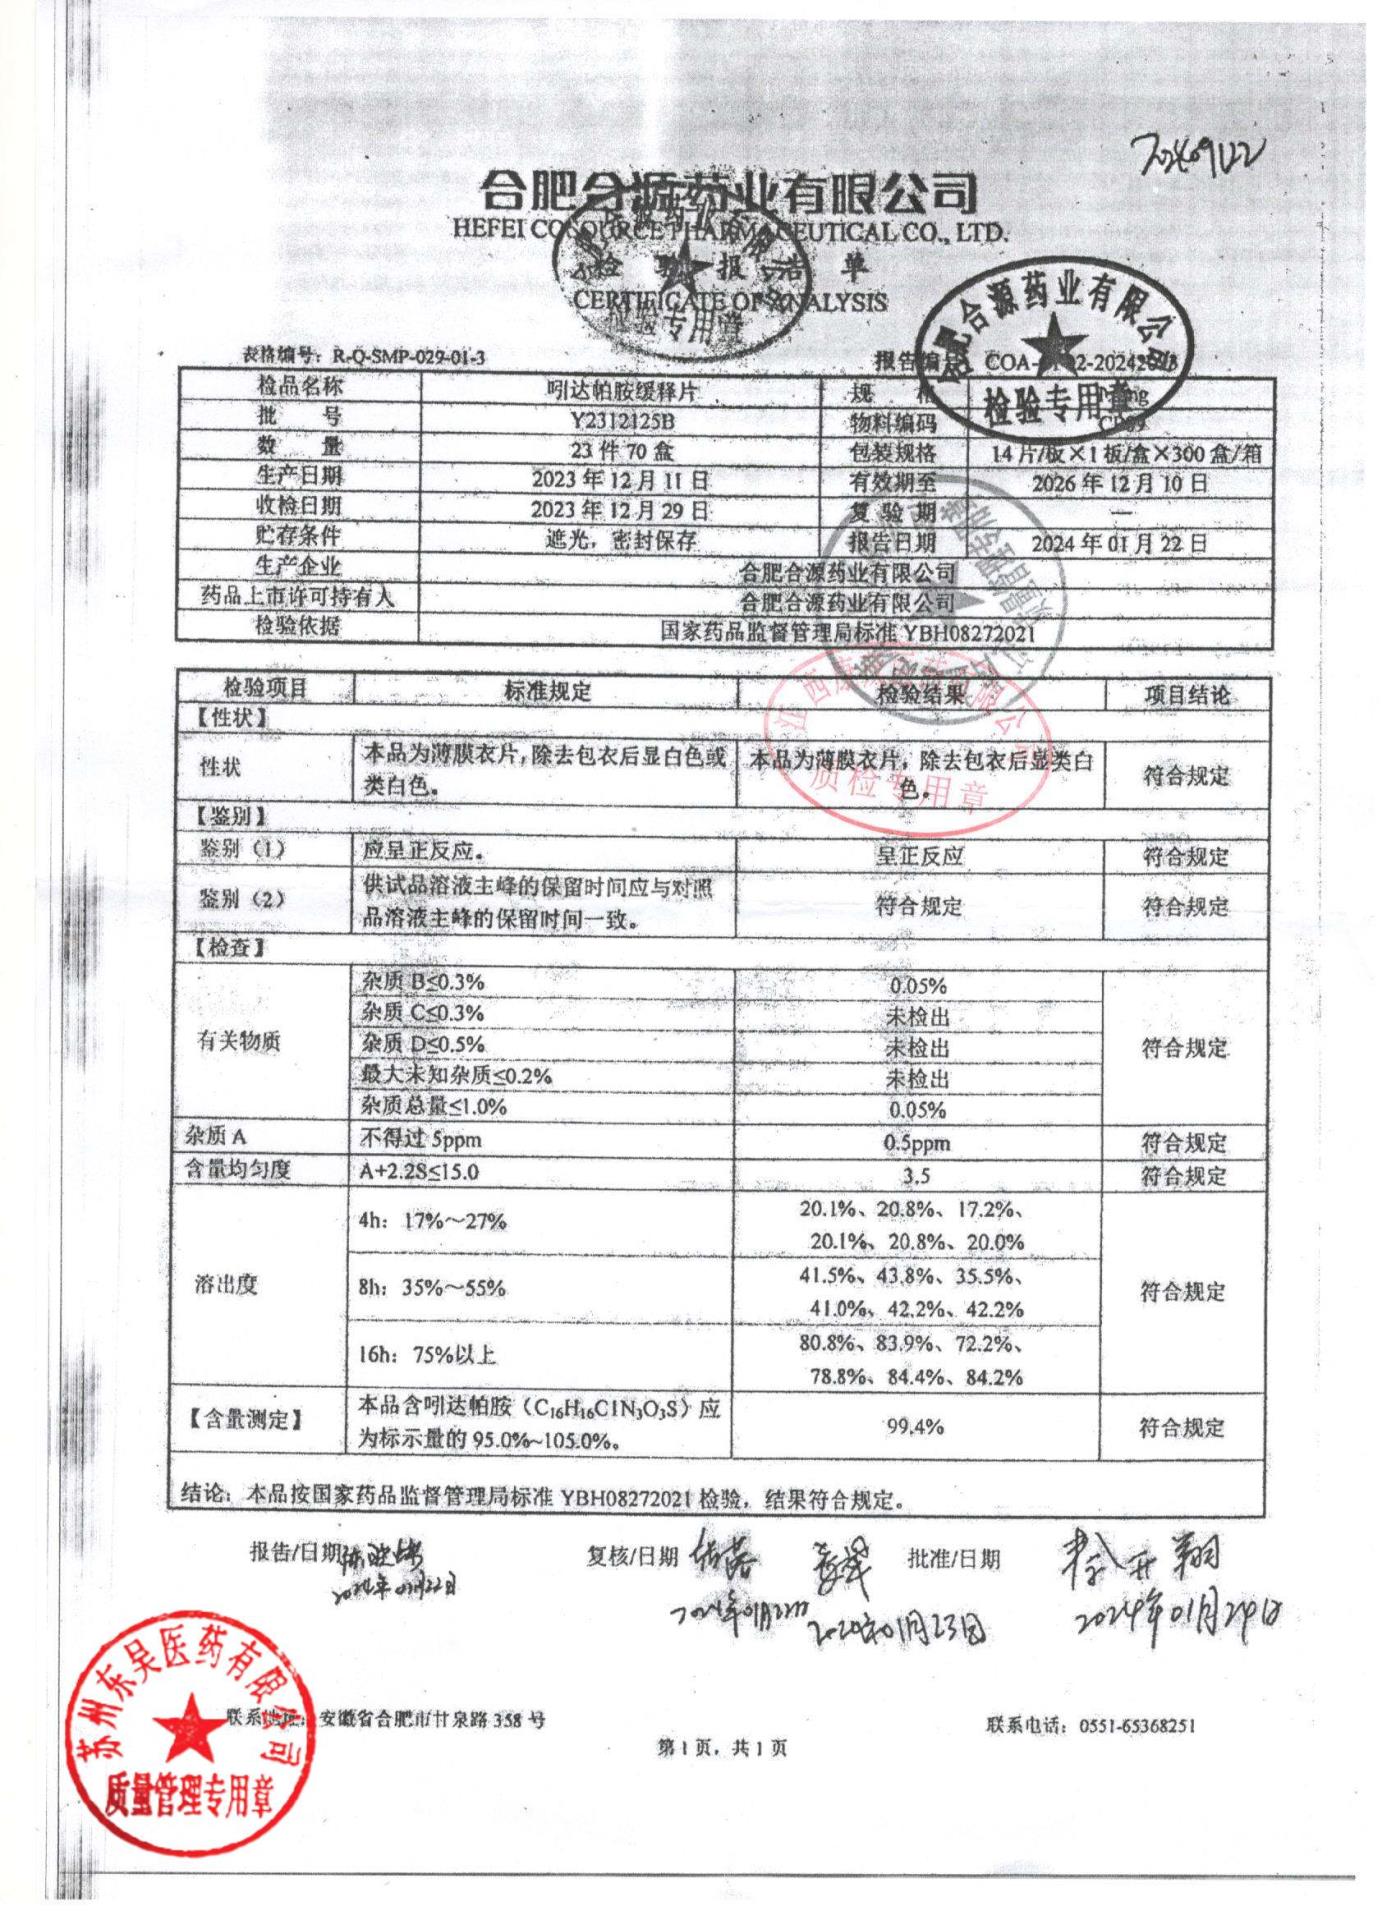 20240922
合肥合源药业有限公司
HEFEI COSOURCE PHARMACEUTICAL CO., LTD.
检 验 报 告 单
CERTIFICATE OF ANALYSIS
合肥合源药业有限公司
检验专用章
表格编号：R-Q-SMP-029-01-3 报告编号 COA-
检品名称 吲达帕胺缓释片 规 格
批 号 Y2312125B 物料编码
数 量 23 件 70 盒 包装规格 14 片/板×1 板/盒×300 盒/箱
生产日期 2023 年 12 月 11 日 有效期至 2026 年 12 月 10 日
收检日期 2023 年 12 月 29 日 复 验 期 —
贮存条件 遮光，密封保存 报告日期 2024 年 01 月 22 日
生产企业 合肥合源药业有限公司
药品上市许可持有人 合肥合源药业有限公司
检验依据 国家药品监督管理局标准 YBH08272021
检验项目 标准规定 检验结果 项目结论
【性状】
性状 本品为薄膜衣片，除去包衣后显白色或 本品为薄膜衣片，除去包衣后显类白 符合规定
类白色。 色。
质检专用章
【鉴别】
鉴别（1） 应呈正反应。 呈正反应 符合规定
鉴别（2） 供试品溶液主峰的保留时间应与对照 符合规定 符合规定
品溶液主峰的保留时间一致。
【检查】
有关物质 杂质 B≤0.3% 0.05% 符合规定
杂质 C≤0.3% 未检出
杂质 D≤0.5% 未检出
最大未知杂质≤0.2% 未检出
杂质总量≤1.0% 0.05%
杂质 A 不得过 5ppm 0.5ppm 符合规定
含量均匀度 A+2.2S≤15.0 3.5 符合规定
溶出度 4h：17%～27% 20.1%、20.8%、17.2%、 符合规定
20.1%、20.8%、20.0%
8h：35%～55% 41.5%、43.8%、35.5%、
41.0%、42.2%、42.2%
16h：75%以上 80.8%、83.9%、72.2%、
78.8%、84.4%、84.2%
【含量测定】 本品含吲达帕胺（C₁₆H₁₆ClN₃O₃S）应 99.4% 符合规定
为标示量的 95.0%~105.0%。
结论：本品按国家药品监督管理局标准 YBH08272021 检验，结果符合规定。
报告/日期 复核/日期 批准/日期
2024年01月22日 2024年01月22日 01月23日 2024年01月24日
苏州东吴医药有限公司
质量管理专用章
联系地址：安徽省合肥市甘泉路 358 号 联系电话：0551-65368251
第 1 页，共 1 页